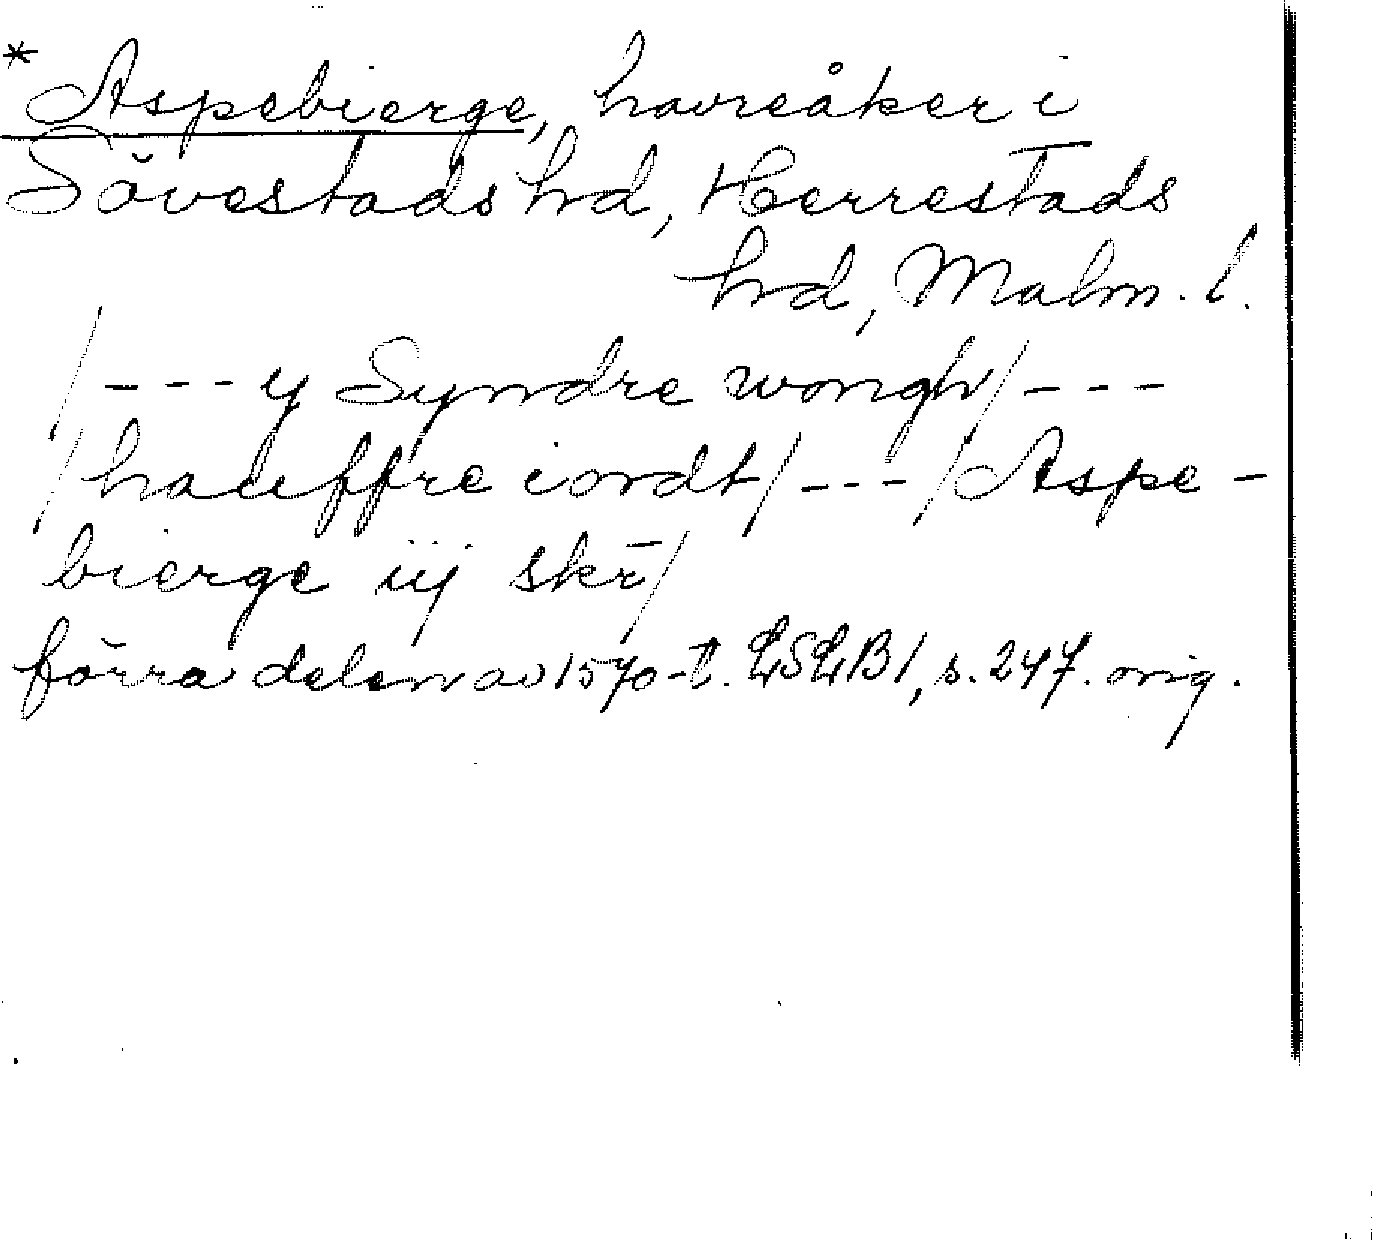 * Aspebierge, havreåker i
Sövestads hrd, Herrestads
hrd, Malm. l.
/--- y Syndre wongh/ ---
/hauffre iordt/ --- /Aspe-
bierge iij skr̄/
förra delen av 1570-t. LSLB1, s. 247. orig.